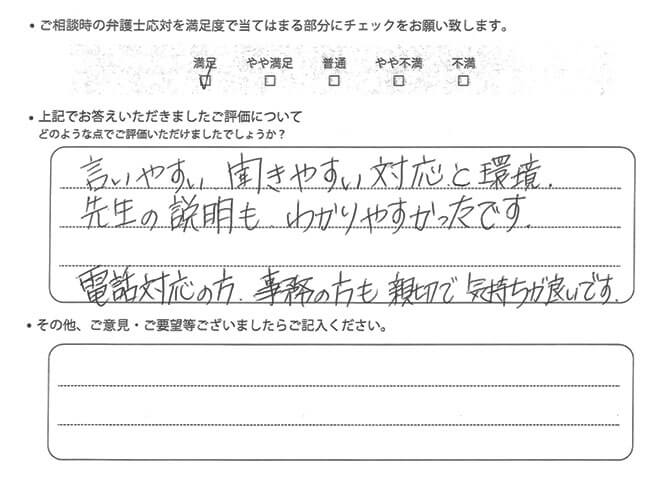 • ご相談時の弁護士応対を満足度で当てはまる部分にチェックをお願い致します。
満足 やや満足 普通 やや不満 不満
• 上記でお答えいただきましたご評価について
どのような点でご評価いただけましたでしょうか？
言いやすい 聞きやすい 対応と環境.
先生の説明も、わかりやすかったです.
電話対応の方、事務の方も 親切で 気持ちが良いです.
• その他、ご意見・ご要望等ございましたらご記入ください。